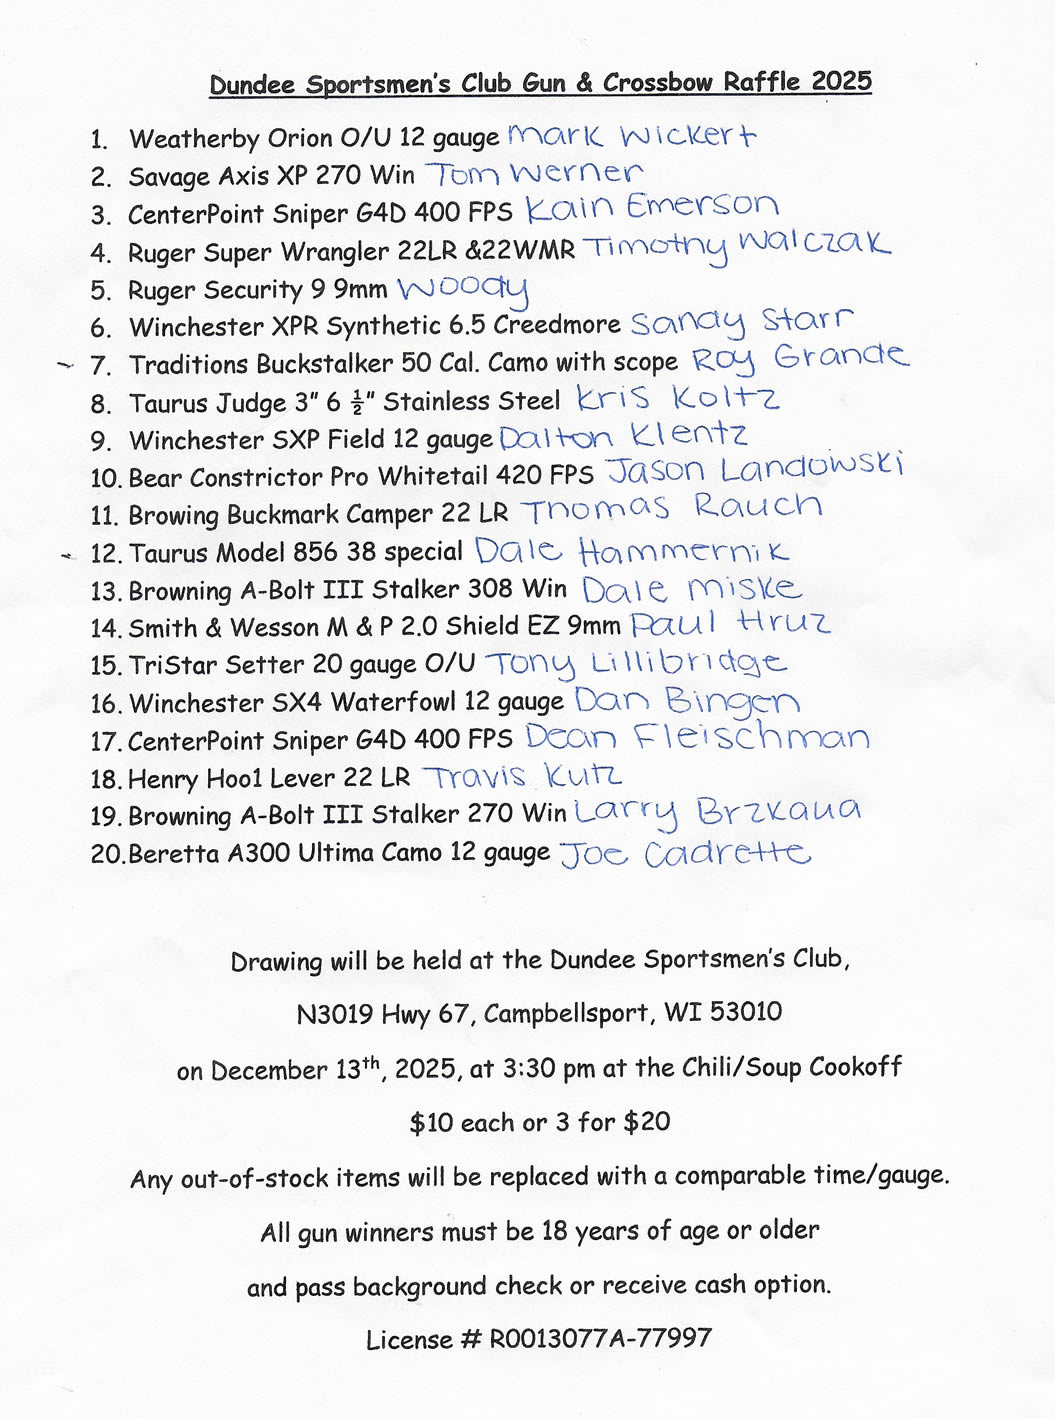 Dundee Sportsmen's Club Gun & Crossbow Raffle 2025
1. Weatherby Orion O/U 12 gauge Mark Wickert
2. Savage Axis XP 270 Win Tom Werner
3. CenterPoint Sniper G4D 400 FPS Kain Emerson
4. Ruger Super Wrangler 22LR &22WMR Timothy Walczak
5. Ruger Security 9 9mm Woody
6. Winchester XPR Synthetic 6.5 Creedmore Sandy Starr
7. Traditions Buckstalker 50 Cal. Camo with scope Roy Grande
8. Taurus Judge 3" 6 ½" Stainless Steel Kris Koltz
9. Winchester SXP Field 12 gauge Dalton Klentz
10. Bear Constrictor Pro Whitetail 420 FPS Jason Landowski
11. Browing Buckmark Camper 22 LR Thomas Rauch
12. Taurus Model 856 38 special Dale Hammernik
13. Browning A-Bolt III Stalker 308 Win Dale Miske
14. Smith & Wesson M & P 2.0 Shield EZ 9mm Paul Hruz
15. TriStar Setter 20 gauge O/U Tony Lillibridge
16. Winchester SX4 Waterfowl 12 gauge Dan Bingen
17. CenterPoint Sniper G4D 400 FPS Dean Fleischman
18. Henry Hoo1 Lever 22 LR Travis Kutz
19. Browning A-Bolt III Stalker 270 Win Larry Brzkaua
20. Beretta A300 Ultima Camo 12 gauge Joe Cadrette
Drawing will be held at the Dundee Sportsmen's Club,
N3019 Hwy 67, Campbellsport, WI 53010
on December 13th, 2025, at 3:30 pm at the Chili/Soup Cookoff
$10 each or 3 for $20
Any out-of-stock items will be replaced with a comparable time/gauge.
All gun winners must be 18 years of age or older
and pass background check or receive cash option.
License # R0013077A-77997